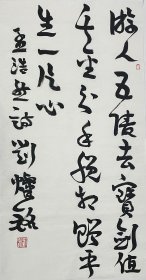 游人五陵去寶劍值
千金分手脱相贈平
生一片心
孟浩然詩 劉